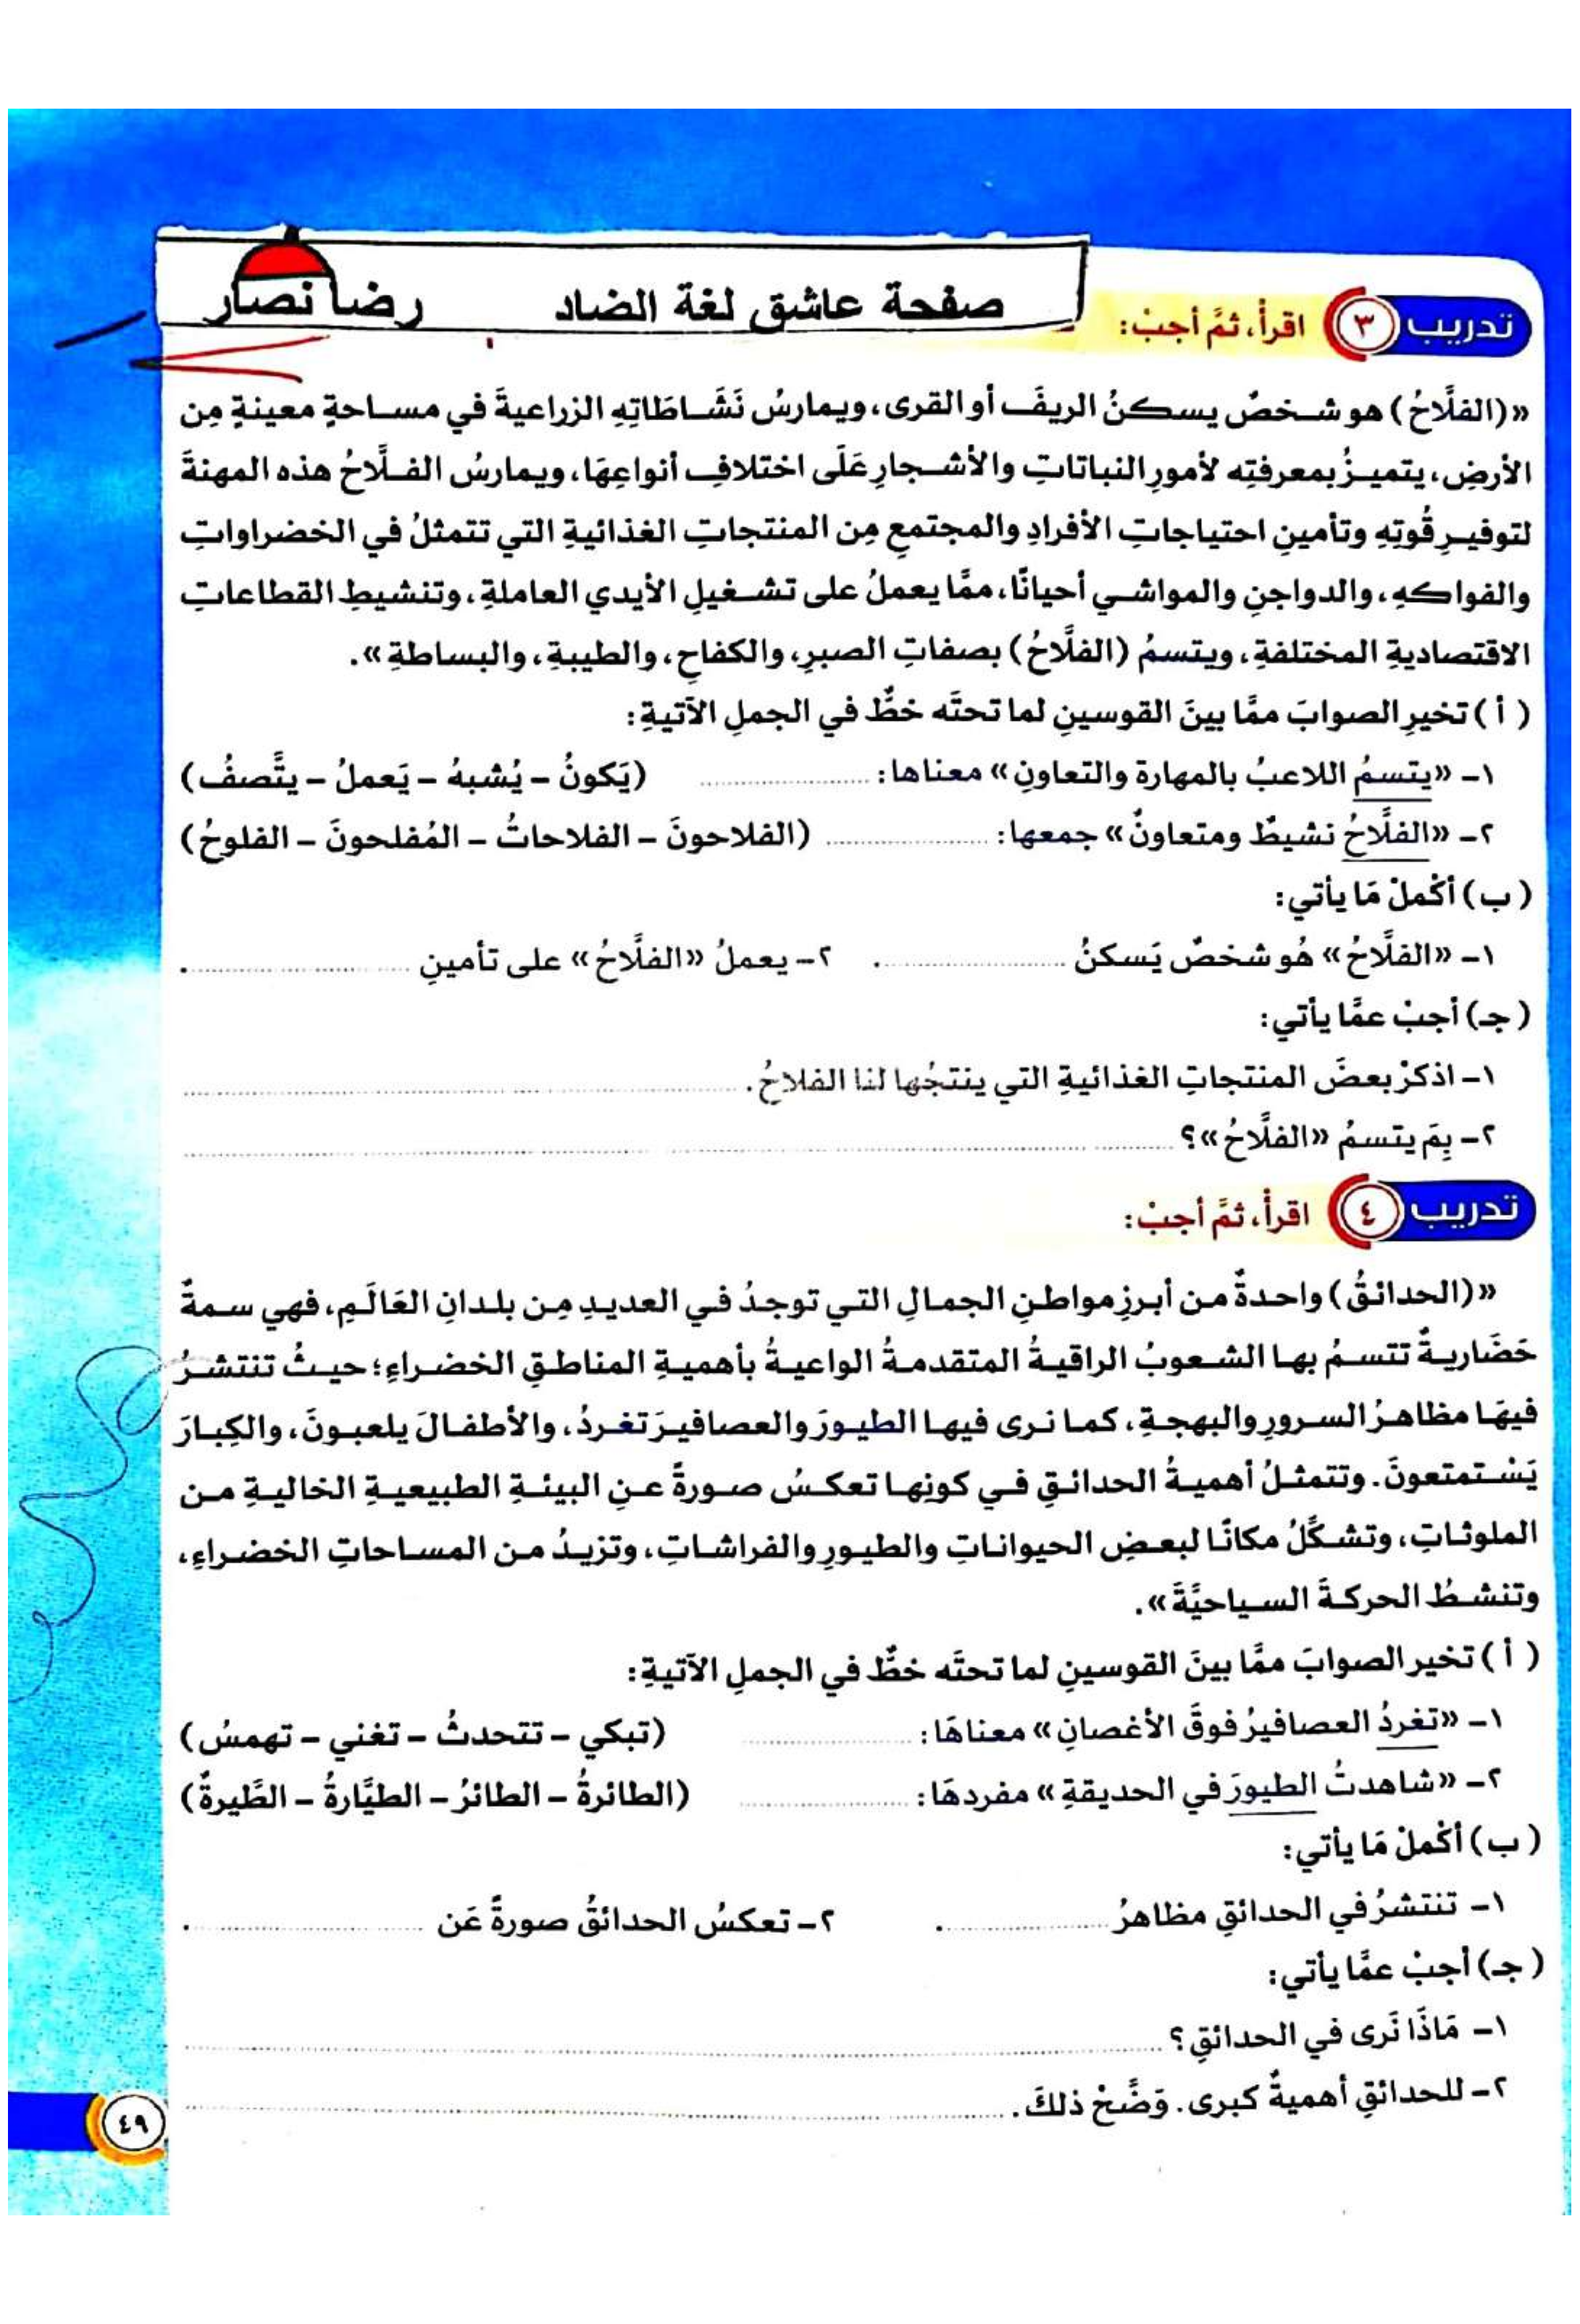 صفحة عاشق لغة الضاد رضا نصار
تدريب ٣ اقرأ، ثمَّ أجبْ:
«(الفلَّاحُ) هو شخصٌ يسكنُ الريفَ أو القرى، ويمارسُ نَشَاطَاتِهِ الزراعيةَ في مساحةٍ معينةٍ مِن
الأرضِ، يتميزُ بمعرفتِه لأمورِ النباتاتِ والأشجارِ عَلَى اختلافِ أنواعِهَا، ويمارسُ الفلَّاحُ هذه المهنةَ
لتوفيرِ قُوتِهِ وتأمينِ احتياجاتِ الأفرادِ والمجتمعِ مِن المنتجاتِ الغذائيةِ التي تتمثلُ في الخضراواتِ
والفواكهِ، والدواجنِ والمواشي أحيانًا، ممَّا يعملُ على تشغيلِ الأيدي العاملةِ، وتنشيطِ القطاعاتِ
الاقتصاديةِ المختلفةِ، ويتسمُ (الفلَّاحُ) بصفاتِ الصبرِ، والكفاحِ، والطيبةِ، والبساطةِ».
( أ ) تخيرِ الصوابَ ممَّا بينَ القوسينِ لما تحتَه خطٌّ في الجملِ الآتيةِ:
١- «يتسمُ اللاعبُ بالمهارة والتعاونِ» معناها: .................... (يَكونُ - يُشبهُ - يَعملُ - يتَّصفُ)
٢- «الفلَّاحُ نشيطٌ ومتعاونٌ» جمعها: .................... (الفلاحونَ - الفلاحاتُ - المُفلحونَ - الفلوحُ)
(ب) أكْملْ مَا يأتي:
١- «الفلَّاحُ» هُو شخصٌ يَسكنُ .................... . ٢- يعملُ «الفلَّاحُ» على تأمينِ .................... .
(جـ) أجبْ عمَّا يأتي:
١- اذكرْ بعضَ المنتجاتِ الغذائيةِ التي ينتجُها لنا الفلاحُ. ....................
٢- بِمَ يتسمُ «الفلَّاحُ»؟ ....................
تدريب ٤ اقرأْ، ثمَّ أجبْ:
«(الحدائقُ) واحدةٌ من أبرزِ مواطنِ الجمالِ التي توجدُ في العديدِ مِن بلدانِ العَالَمِ، فهي سمةٌ
حَضَاريةٌ تتسمُ بها الشعوبُ الراقيةُ المتقدمةُ الواعيةُ بأهميةِ المناطقِ الخضراءِ؛ حيثُ تنتشرُ
فيهَا مظاهرُ السرورِ والبهجةِ، كما نرى فيها الطيورَ والعصافيرَ تغردُ، والأطفالَ يلعبونَ، والكِبارَ
يَسْتمتعونَ. وتتمثلُ أهميةُ الحدائقِ في كونِها تعكسُ صورةً عنِ البيئةِ الطبيعيةِ الخاليةِ من
الملوثاتِ، وتشكِّلُ مكانًا لبعضِ الحيواناتِ والطيورِ والفراشاتِ، وتزيدُ من المساحاتِ الخضراءِ،
وتنشطُ الحركةَ السياحيَّةَ».
( أ ) تخير الصوابَ ممَّا بينَ القوسينِ لما تحتَه خطٌّ في الجملِ الآتيةِ:
١- «تغردُ العصافيرُ فوقَ الأغصانِ» معناهَا: .................... (تبكي - تتحدثُ - تغني - تهمسُ)
٢- «شاهدتُ الطيورَ في الحديقةِ» مفردهَا: .................... (الطائرةُ - الطائرُ - الطيَّارةُ - الطَّيرةٌ)
(ب) أكْملْ مَا يأتي:
١- تنتشرُ في الحدائقِ مظاهرُ .................... . ٢- تعكسُ الحدائقُ صورةً عَن .................... .
(جـ) أجبْ عمَّا يأتي:
١- مَاذَا نَرى في الحدائقِ؟ ....................
٢- للحدائقِ أهميةٌ كبرى. وَضِّحْ ذلكَ. ....................
٤٩